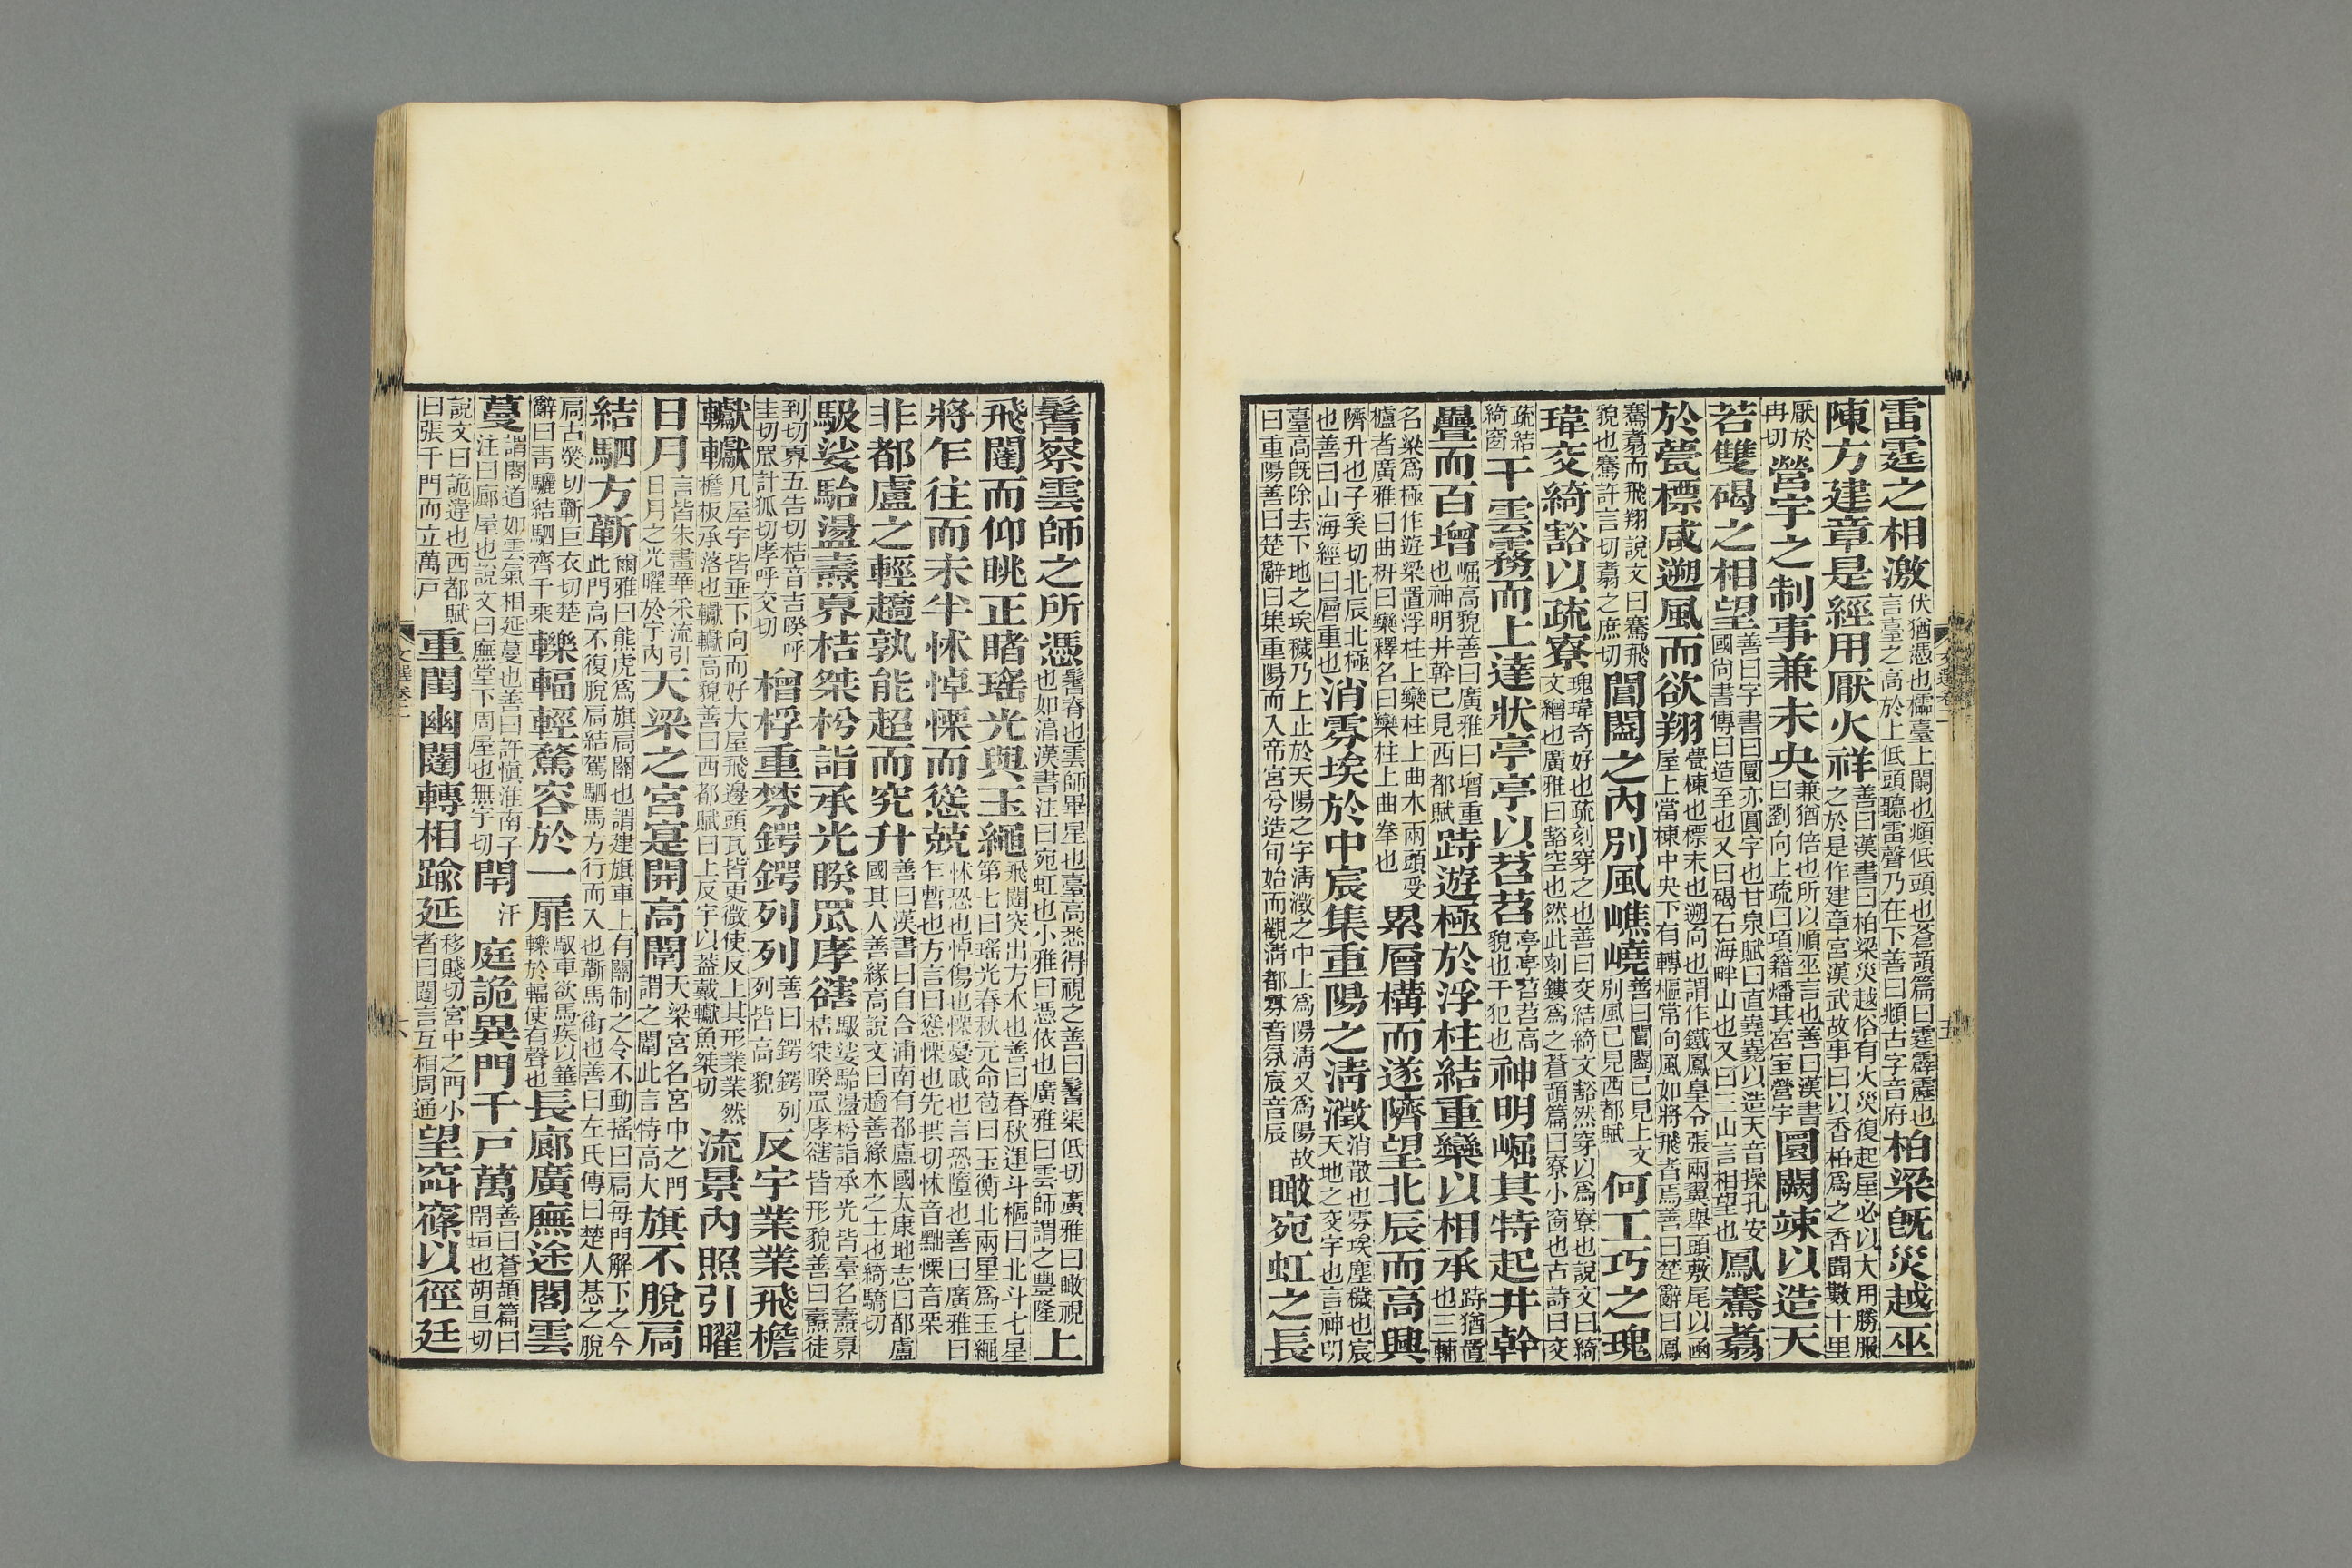 雷霆之相激伏猶憑也櫺臺上闌也頫低頭也蒼頡篇曰霆霹靂也言臺之高於上低頭聽雷聲乃在下善曰頫古字音府柏梁既災越巫
陳方建章是經用厭火祥善曰漢書曰柏梁災越俗有火災復起屋必以大用勝服之於是作建章宮漢武故事曰以香柏爲之香聞數十里
厭於冉切營宇之制事兼未央兼猶倍也所以順巫言也善曰漢書曰劉向上疏曰項籍燔其宮室營宇圜闕竦以造天
若雙碣之相望善曰字書曰圜亦圓字也甘泉賦曰直嶢嶢以造天音操孔安國尚書傳曰造至也又曰碣石海畔山也又曰三山言相望也鳳騫翥
於甍標咸遡風而欲翔甍棟也標末也遡向也謂作鐵鳳皇令張兩翼舉頭敷尾以函屋上當棟中央下有轉樞常向風如將飛者焉善曰楚辭曰鳳
騫翥而飛翔說文曰騫飛貌也騫許言切翥之庶切閶闔之內別風嶕嶢善曰閶闔已見上文別風已見西都賦何工巧之瑰
瑋交綺豁以疏寮瑰瑋奇好也疏刻穿之也善曰交結綺文豁然穿以爲寮也說文曰綺文繒也廣雅曰豁空也然此刻鏤爲之蒼頡篇曰寮小窗也古詩曰交
疏結綺窗干雲霧而上達狀亭亭以苕苕亭亭苕苕高貌也干犯也神明崛其特起井幹
疊而百增崛高貌善曰廣雅曰增重也神明井幹已見西都賦跱遊極於浮柱結重欒以相承跱猶置也三輔
名梁爲極作遊梁置浮柱上欒柱上曲木兩頭受櫨者廣雅曰曲枅曰欒釋名曰欒柱上曲拳也累層構而遂隮望北辰而高興
隮升也子奚切北辰北極也善曰山海經曰層重也消雰埃於中宸集重陽之清瀓消散也雰埃塵穢也宸天地之交宇也言神明
臺高既除去下地之埃穢乃上止於天陽之宇清瀓之中上爲陽清又爲陽故曰重陽善曰楚辭曰集重陽而入帝宮兮造旬始而觀清都雰音氛宸音辰瞰宛虹之長
鬐察雲師之所憑鬐脊也雲師畢星也臺高悉得視之善曰鬐渠低切廣雅曰瞰視也如淳漢書注曰宛虹也小雅曰憑依也廣雅曰雲師謂之豐隆上
飛闥而仰眺正睹瑤光與玉繩飛闥突出方木也善曰春秋運斗樞曰北斗七星第七曰瑤光春秋元命苞曰玉衡北兩星爲玉繩
將乍往而未半怵悼慄而慫兢怵恐也悼傷也慄憂戚也言恐墮也善曰廣雅曰乍暫也方言曰慫慄也先拱切怵音黜慄音栗
非都盧之輕趫孰能超而究升善曰漢書曰自合浦南有都盧國太康地志曰都盧國其人善緣高說文曰趫善緣木之士也綺驕切
馺娑駘盪燾奡桔桀枍詣承光睽罛庨豁馺娑駘盪枍詣承光皆臺名燾奡桔桀睽罛庨豁皆形貌善曰燾徒
到切奡五告切桔音吉睽呼圭切罛計狐切庨呼交切橧桴重棼鍔鍔列列善曰鍔鍔列列皆高貌反宇業業飛檐
轞轞凡屋宇皆垂下向而好大屋飛邊頭瓦皆更微使反上其形業業然檐板承落也轞轞高貌善曰西都賦曰上反宇以蓋戴轞魚桀切流景內照引曜
日月言皆朱畫華采流引日月之光曜於宇內天梁之宮寔開高闈天梁宮名宮中之門謂之闈此言特高大旗不脫扃
結駟方蘄爾雅曰熊虎爲旗扃關也謂建旗車上有關制之令不動搖曰扃每門解下之今此門高不復脫扃結駕駟馬方行而入也蘄馬銜也善曰左氏傳曰楚人惎之脫
扃古熒切蘄巨衣切楚辭曰青驪結駟齊千乘轢輻輕騖容於一扉馭車欲馬疾以箠轢於輻使有聲也長廊廣廡途閣雲
蔓謂閣道如雲氣相延蔓也善曰許慎淮南子注曰廊屋也說文曰廡堂下周屋也無宇切閈汗庭詭異門千戶萬善曰蒼頡篇曰閈垣也胡旦切
說文曰詭違也西都賦曰張千門而立萬戶重閨幽闥轉相踰延移賤切宮中之門小者曰闥言互相周通望䆗窱以徑廷